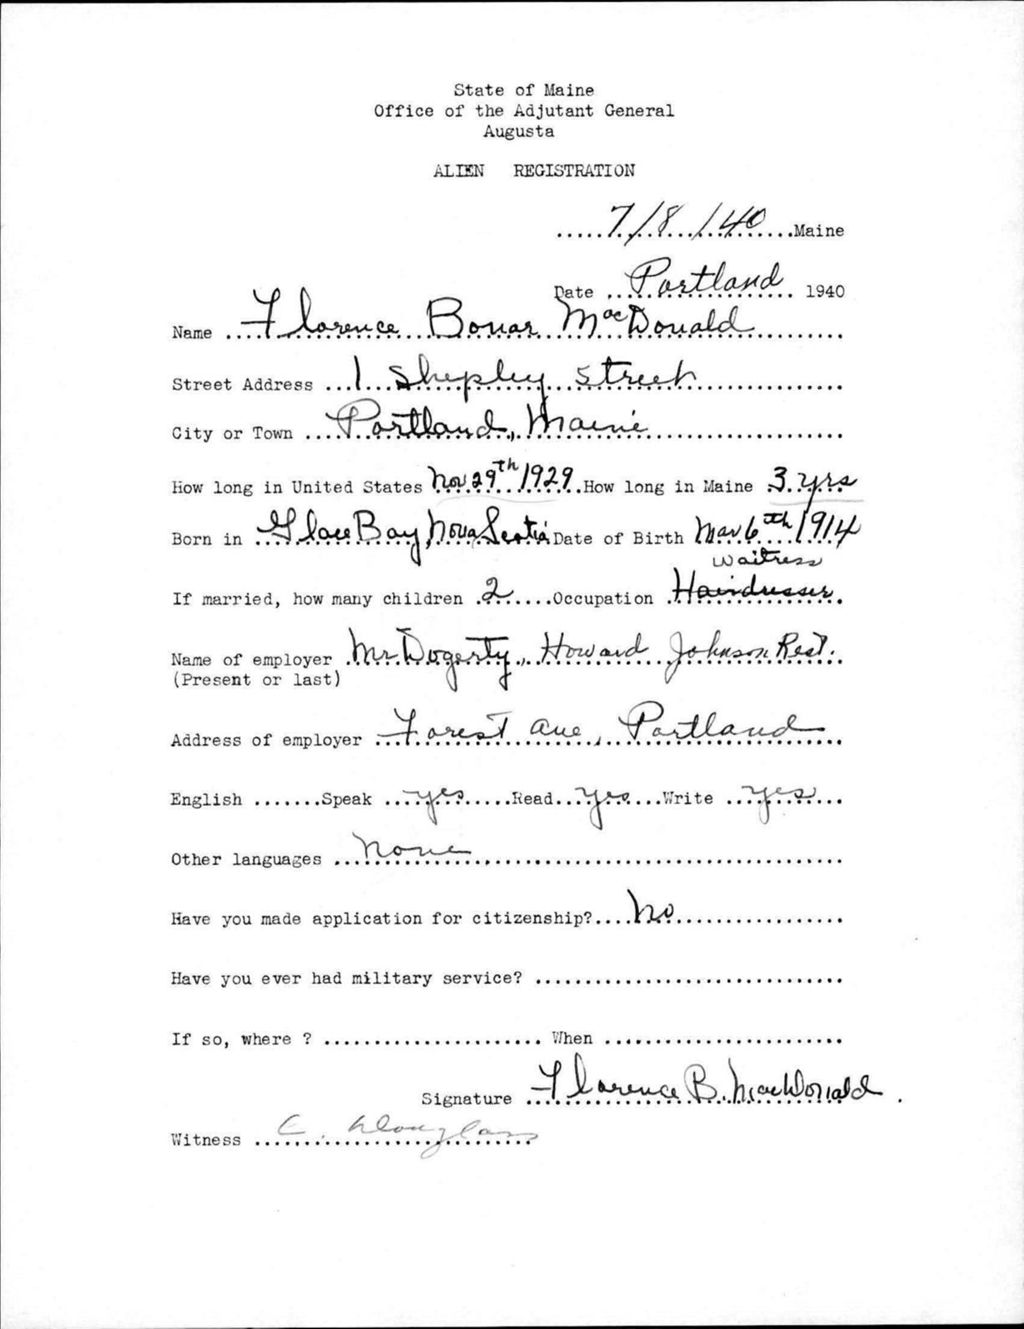 State of Maine
Office of the Adjutant General
Augusta
ALIEN REGISTRATION
.....7/8/40.....Maine
Date ...Portland... 1940
Name ....Florence Bonar MacDonald..........
Street Address ...1 Shepley Street...............
City or Town ....Portland, Maine...................
How long in United States Nov 29th 1929 How long in Maine 3 yrs
Born in Glace Bay, Nova Scotia Date of Birth Mar 6th 1914
waitress
If married, how many children .2.....Occupation Hairdresser.
Name of employer Mr. Dogerty, Howard Johnson Rest.
(Present or last)
Address of employer ...Forest Ave., Portland.....
English .......Speak ...yes.....Read...yes....Write ...yes....
Other languages ....none....................................
Have you made application for citizenship?....No.................
Have you ever had military service? ..............................
If so, where ? ...................... When .......................
Signature Florence B. MacDonald .
Witness .....C. Douglass